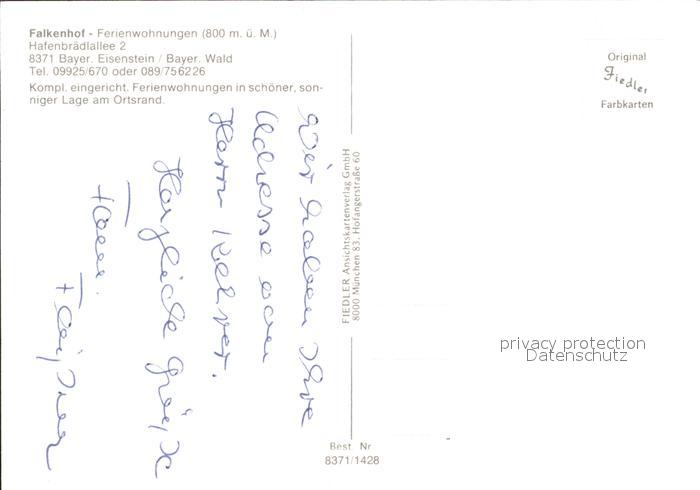 Falkenhof - Ferienwohnungen (800 m. ü. M.)
Hafenbrädlallee 2
8371 Bayer. Eisenstein / Bayer. Wald
Tel. 09925/670 oder 089/756226
Kompl. eingericht. Ferienwohnungen in schöner, son-
niger Lage am Ortsrand.
Original
Fiedler
Farbkarten
Wir haben Ihre
Adresse von
Herrn
Herzliche Grüße
FIEDLER Ansichtskartenverlag GmbH
8000 München 83, Hofangerstraße 60
privacy protection
Datenschutz
Best. Nr
8371/1428